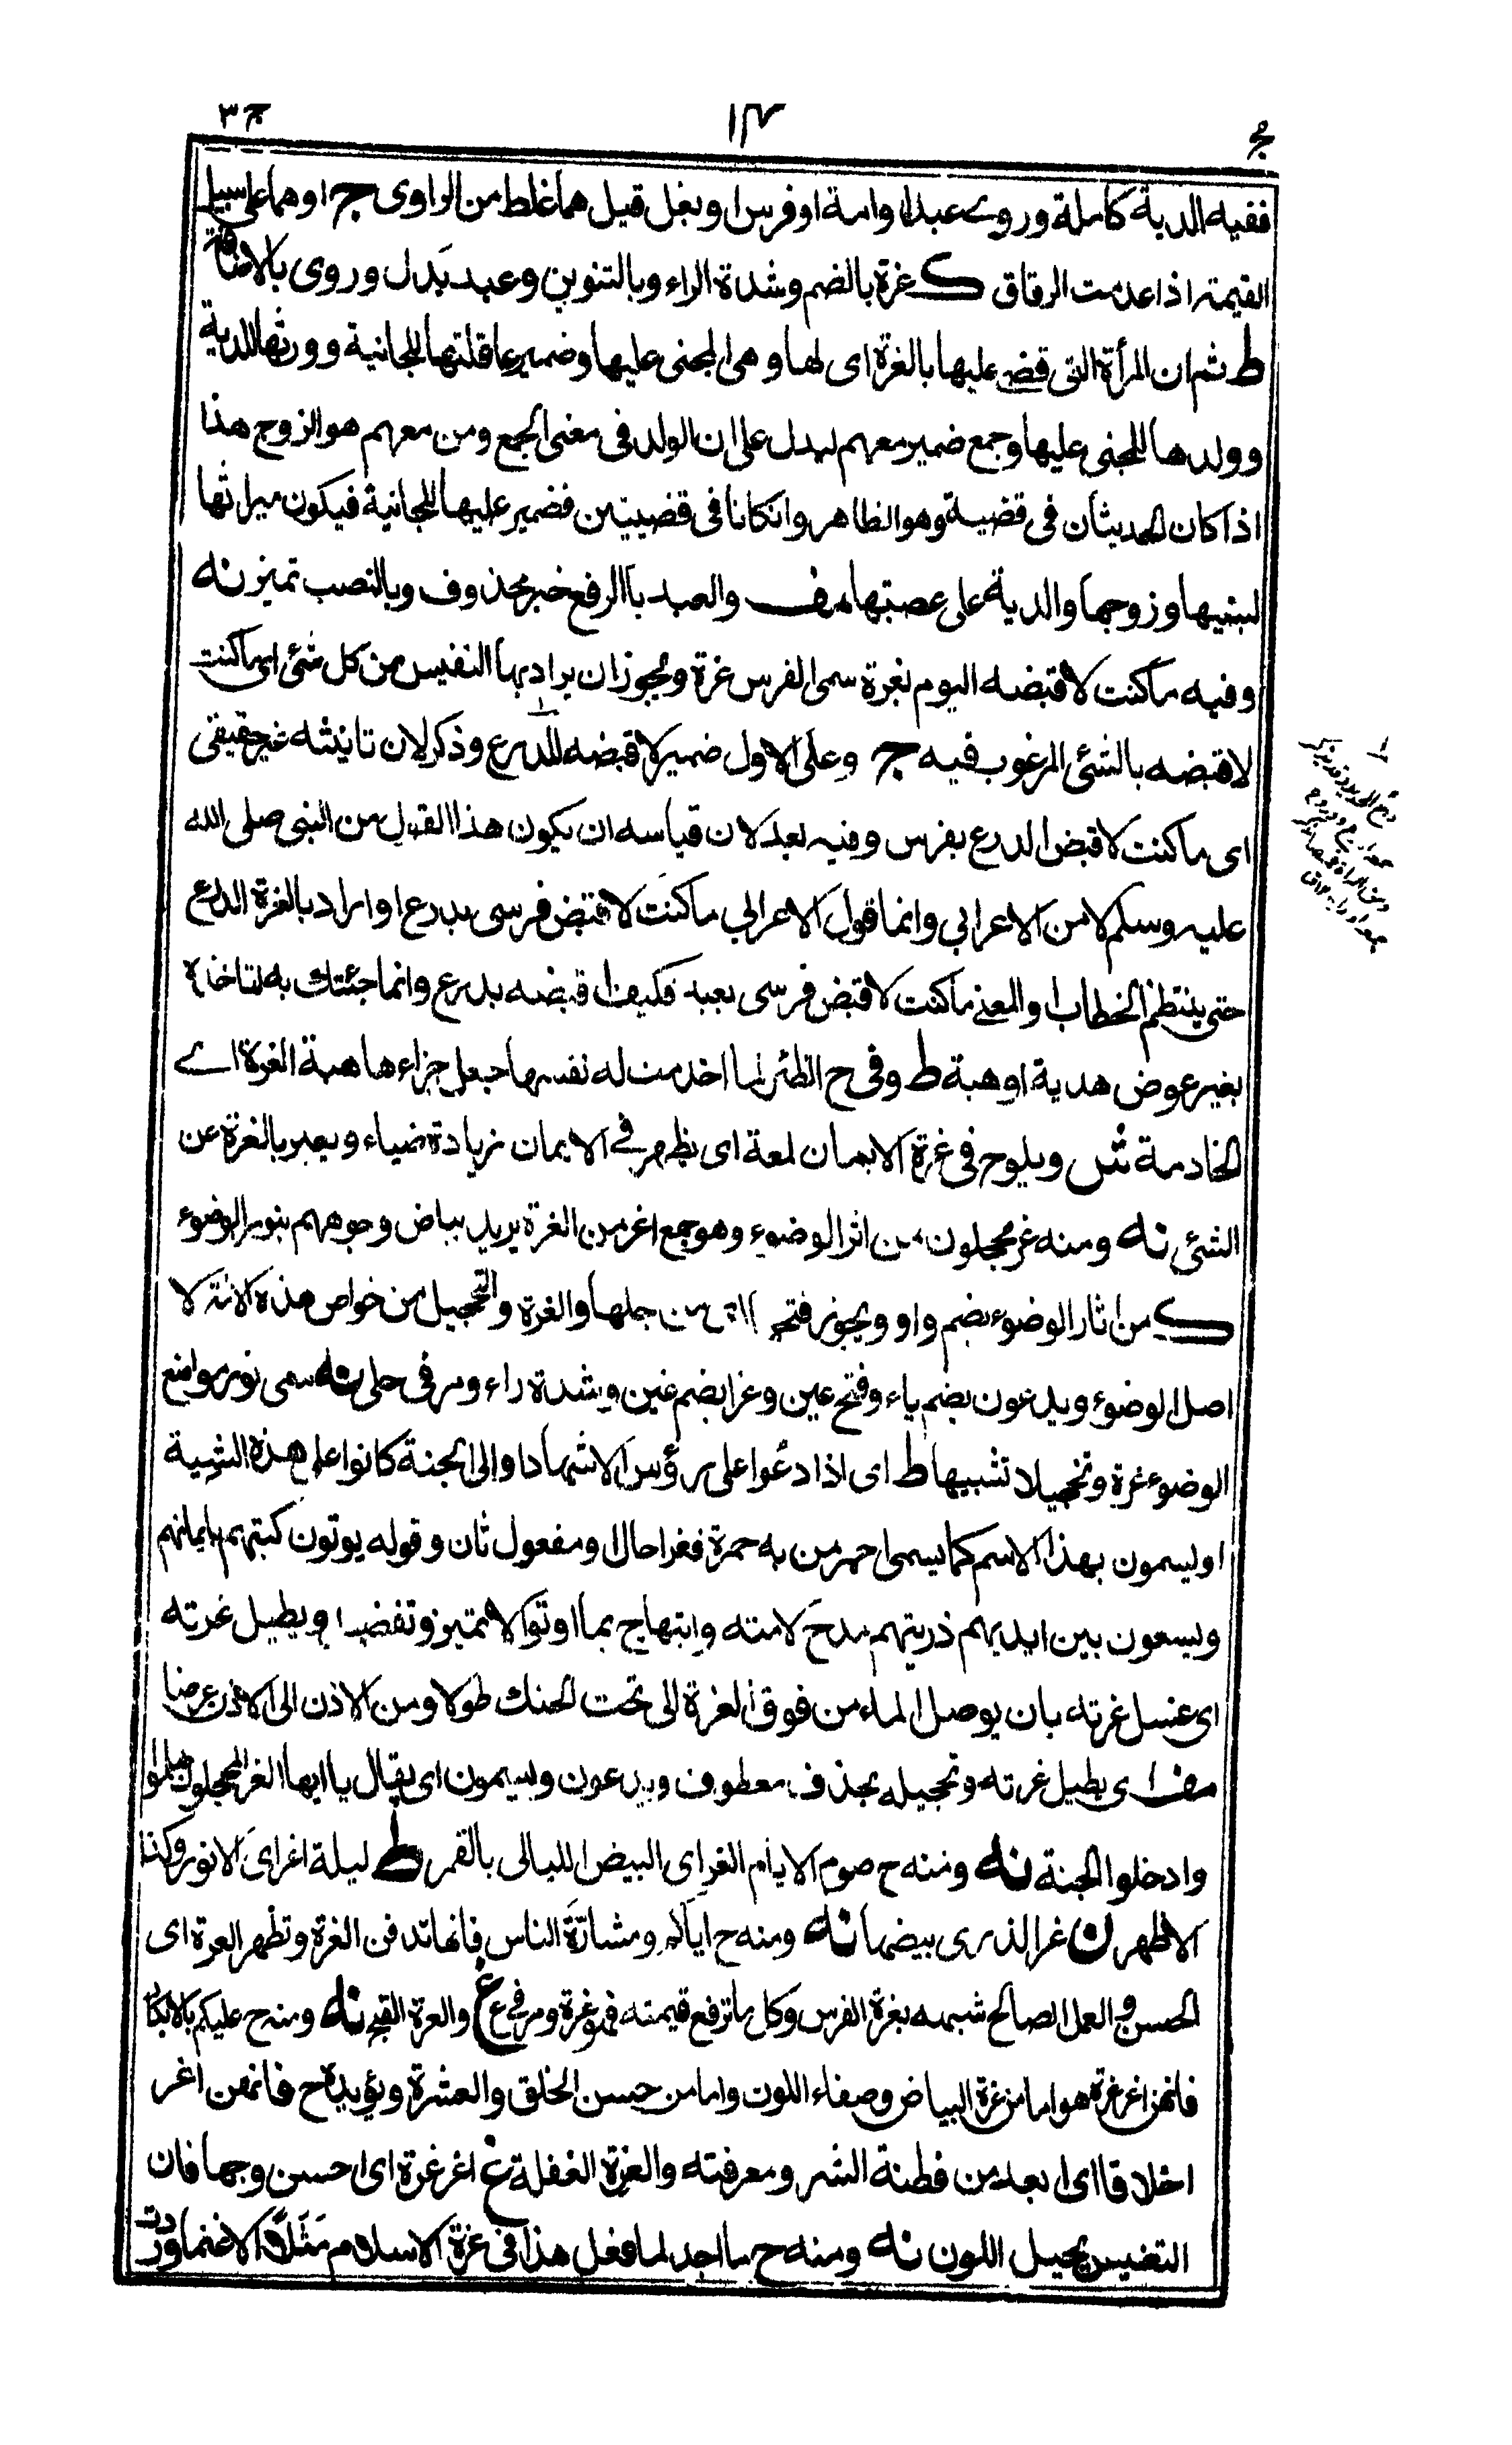 ج ١٤ ج ٣
ففيه الدية كاملة وروے عبدا وامة او فرس او بغل قيل هما غلط من الراوى ج او هما على سبيل
القيمة اذا عدمت الرقاق ک غرة بالضم وشدة الراء وبالتنوين وعبد بَدل وروى بالاضافة
ط ثم ان المرأة التى قضے عليها بالغرة اى لها وهى المجنى عليها وضمير عاقلتها للجانية وورثها للدية
وولدها للمجنى عليها وجمع ضمير معهم ليدل على ان الولد فى معنى الجمع ومن معهم هو الزوج هذا
اذا كان الحديثان فى قضية وهو الظاهر وان كانا فى قضيتين فضمير عليها للجانية فيكون ميراثها
لبنيها وزوجها والدية على عصبتها مف والعبد بالرفع خبر محذوف وبالنصب تميز نه
وفيه ما كنت لاقبضه اليوم بغرة سمى الفرس غرة ويجوز ان يراد بها النفيس من كل شئ اى ما كنت
لاقبضه بالشئ المرغوب فيه ج وعلى الاول ضمير لاقبضه للدرع وذكر لان تانيثه غير حقيقى
اى ما كنت لاقبض الدرع بفرس وفيه بعد لان قياسه ان يكون هذا القول من النبى صلى الله
عليه وسلم لا من الاعرابي وانما قول الاعرابي ما كنت لاقبض فرسى بدرع او اراد بالغرة الدرع
حتى ينتظم الخطاب او المعنے ما كنت لاقبض فرسى بعبد فكيف اقبضه بدرع وانما جئتك به لتاخذه
بغير عوض هدية او هبة ط وفى ح الظئر لما اخدمت له نفسها جعل جزاءها هبة الغرة اے
الخادمة ش ويلوح فى غرة الايمان لمعة اى يظهر فے الايمان زيادة ضياء ويعبر بالغرة عن
الشئ نه ومنه غر محجلون من اثر الوضوء وهو جمع اغر من الغرة يريد بياض وجوههم بنور الوضوء
ک من اثار الوضوء بضم واو ويجوز فتحه من جلها والغرة والتحجيل من خواص هذه الامة لا
اصل الوضوء ويدعون بضم ياء وفتح عين وغرا بضم غين وشدة راء ومر فى حلى نه سمى نور مواضع
الوضوء غرة وتحجيلا تشبيها ط اى اذا دعُوا على رؤس الاشهاد او الى الجنة كانوا على هذه الشية
او يسمون بهذا الاسم كما يسمى احمر من به حمرة فغرا حال او مفعول ثان وقوله يوتون كتبهم بايمانهم
ويسعون بين ايديهم ذريتهم مدح لامته وابتهاج بما اوتوا لا تميز وتفضيل ويطيل غرته
اى غسل غرته بان يوصل الماء من فوق الغرة الى تحت الحنك طولا ومن الاذن الى الاذن عرضا
مف اى يطيل غرته وتحجيله بحذف معطوف ويدعون ويسمون اى يقال يا ايها الغر المحجلون هلموا
وادخلوا الجنة نه ومنه ح صوم الايام الغر اى البيض الليالى بالقمر ط ليلة اغر اى الانور وكذا
الاظهر ن غر الذرى بيضها نه ومنه ح اياكم ومشارّة الناس فانها تدفن الغرة وتظهر العرة اى
الحسن والعمل الصالح شبهه بغرة الفرس وكل ما ترفع قيمته فهو غرة ومر فى ع غ والعرة القبح نه ومنه ح عليكم بالابكار
فانهن اغر غرة هو اما من غرة البياض وصفاء اللون واما من حسن الخلق والعشرة ويؤيده ح فانهن اغر
اخلاقا اى ابعد من فطنة الشر ومعرفته والغرة الغفلة غ اغر غرة اى احسن وجها فان
التعنيس يحيل اللون نه ومنه ح ما اجد لما فعل هذا فى غرة الاسلام مَثَلاً الا غنما وردت